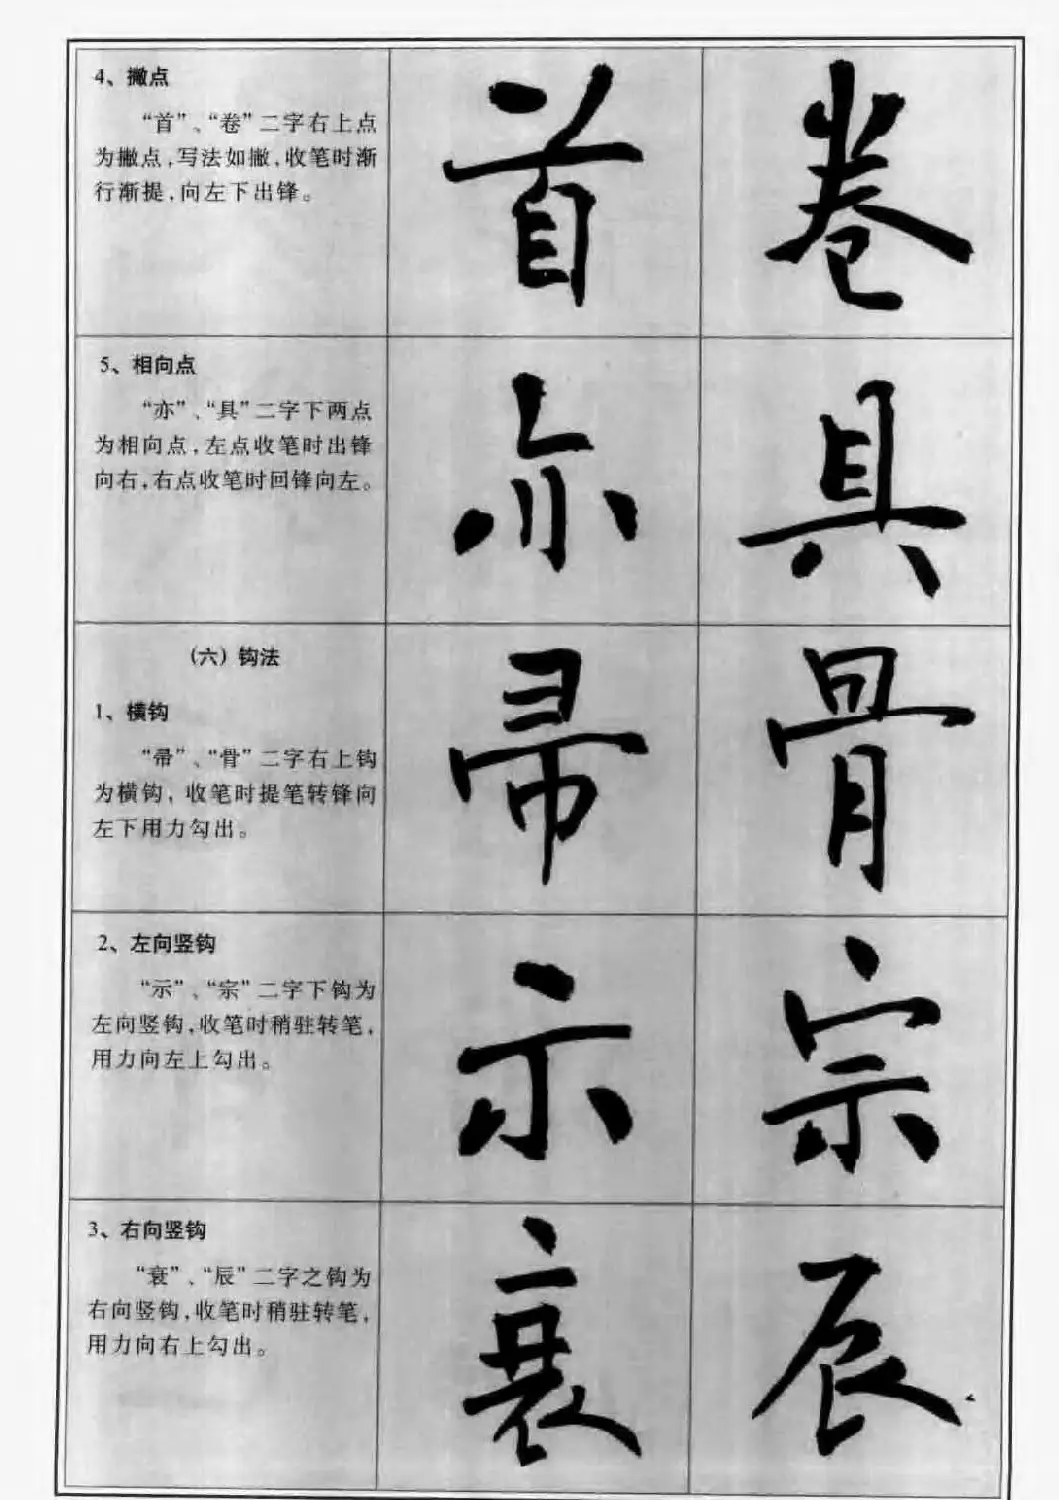 4、撇点
“首”、“卷”二字右上点
为撇点，写法如撇，收笔时渐
行渐提，向左下出锋。
首 卷
5、相向点
“亦”、“具”二字下两点
为相向点，左点收笔时出锋
向右，右点收笔时回锋向左。
亦 具
（六）钩法
1、横钩
“帚”、“骨”二字右上钩
为横钩，收笔时提笔转锋向
左下用力勾出。
帚 骨
2、左向竖钩
“示”、“宗”二字下钩为
左向竖钩，收笔时稍驻转笔，
用力向左上勾出。
示 宗
3、右向竖钩
“衰”、“辰”二字之钩为
右向竖钩，收笔时稍驻转笔，
用力向右上勾出。
衰 辰